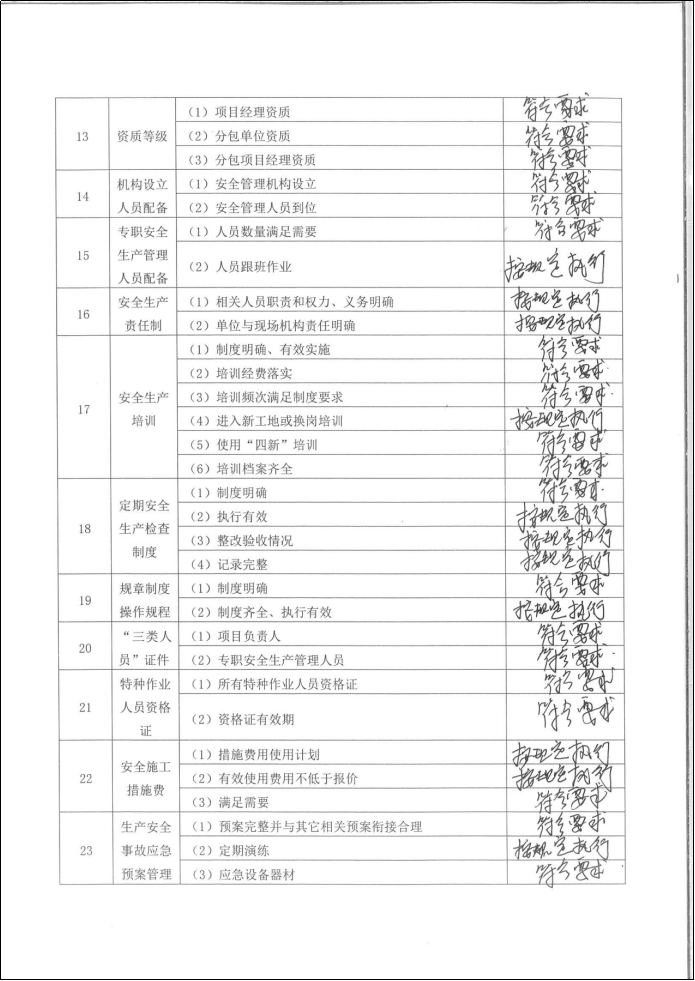 13
资质等级
（1）项目经理资质
符合要求
（2）分包单位资质
符合要求
（3）分包项目经理资质
符合要求
14
机构设立
人员配备
（1）安全管理机构设立
符合要求
（2）安全管理人员到位
符合要求
15
专职安全
生产管理
人员配备
（1）人员数量满足需要
符合要求
（2）人员跟班作业
按规定执行
16
安全生产
责任制
（1）相关人员职责和权力、义务明确
按规定执行
（2）单位与现场机构责任明确
按规定执行
17
安全生产
培训
（1）制度明确、有效实施
符合要求
（2）培训经费落实
符合要求
（3）培训频次满足制度要求
符合要求
（4）进入新工地或换岗培训
按规定执行
（5）使用“四新”培训
符合要求
（6）培训档案齐全
符合要求
18
定期安全
生产检查
制度
（1）制度明确
符合要求
（2）执行有效
按规定执行
（3）整改验收情况
按规定执行
（4）记录完整
按规定执行
19
规章制度
操作规程
（1）制度明确
符合要求
（2）制度齐全、执行有效
按规定执行
20
“三类人
员”证件
（1）项目负责人
符合要求
（2）专职安全生产管理人员
符合要求
21
特种作业
人员资格
证
（1）所有特种作业人员资格证
符合要求
（2）资格证有效期
符合要求
22
安全施工
措施费
（1）措施费用使用计划
按规定执行
（2）有效使用费用不低于报价
按规定执行
（3）满足需要
符合要求
23
生产安全
事故应急
预案管理
（1）预案完整并与其它相关预案衔接合理
符合要求
（2）定期演练
按规定执行
（3）应急设备器材
符合要求